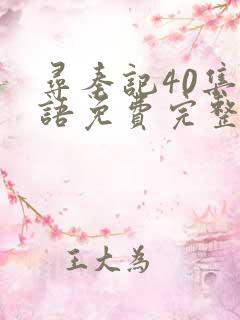 尋秦記40集
語免費完整
王大為